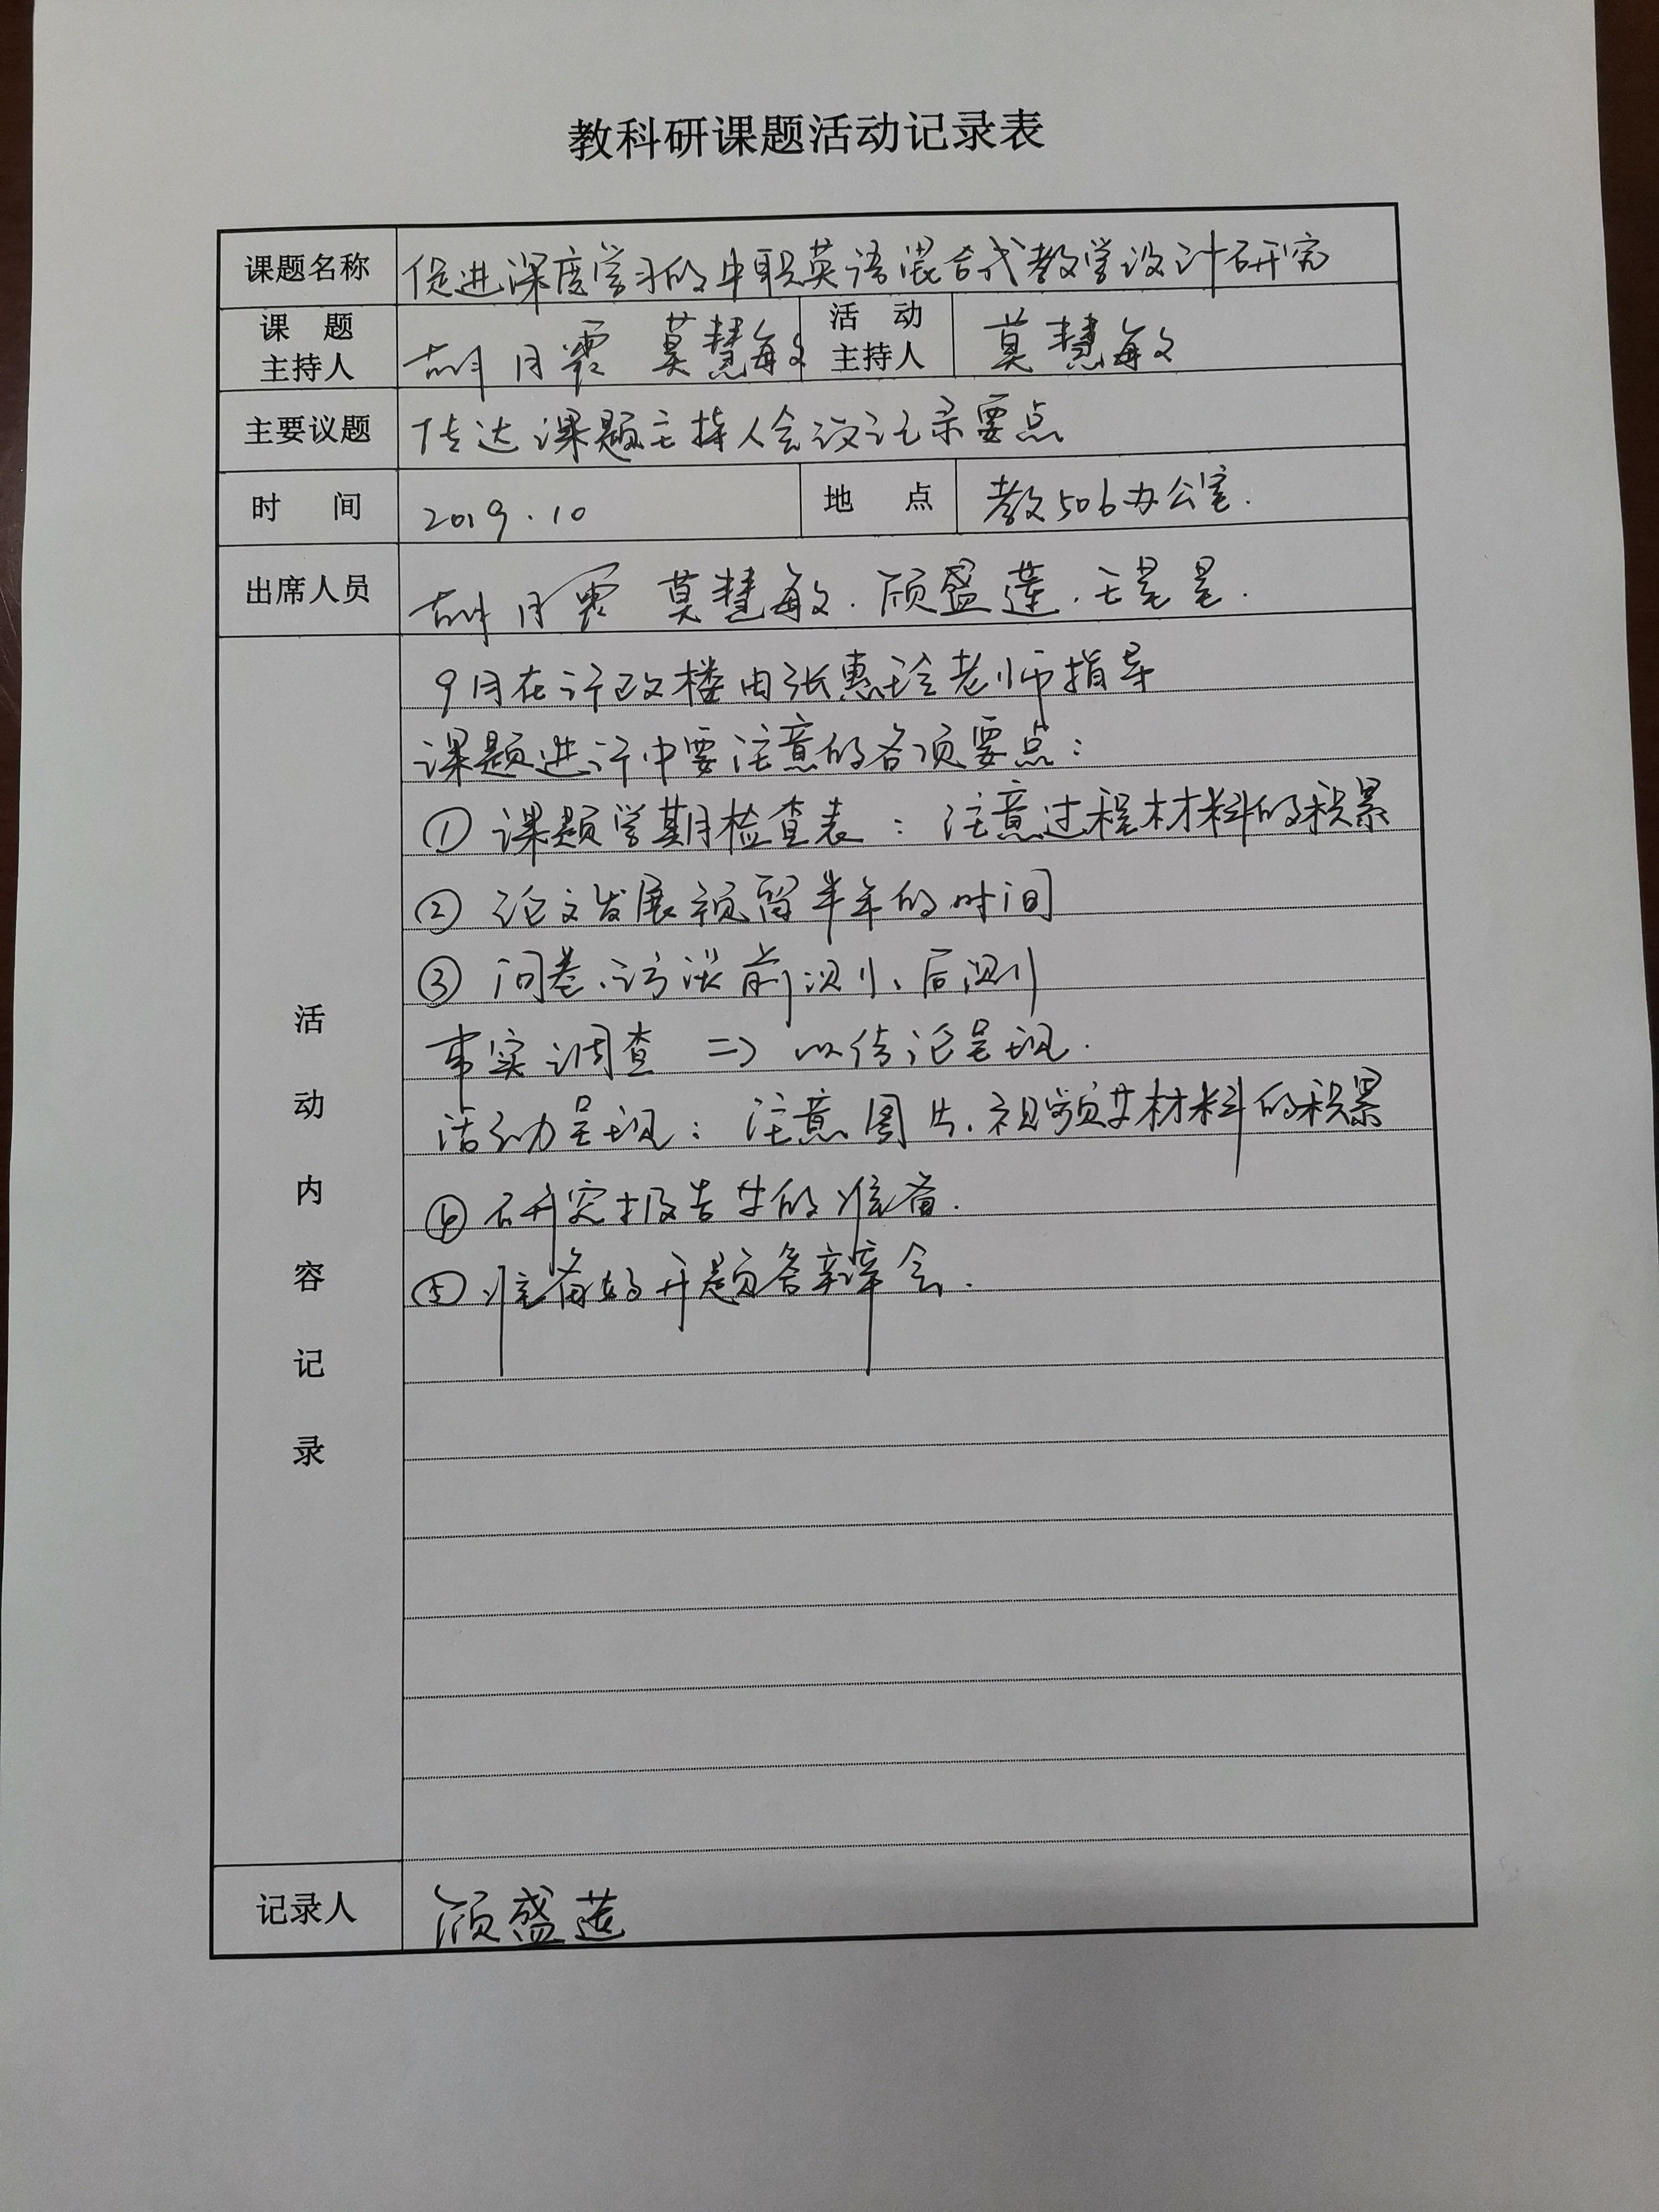 教科研课题活动记录表
课题名称 促进深度学习的中职英语混合式教学设计研究
课 题 主持人 胡月霞 莫慧敏 活 动 主持人 莫慧敏
主要议题 传达课题主持人会议记录要点
时 间 2019.10 地 点 教506办公室.
出席人员 胡月霞 莫慧敏.顾盛莲.王星星.
活动内容记录
9月在行政楼由张惠玲老师指导
课题进行中要注意的各项要点:
① 课题学期检查表:注意过程材料的积累
② 论文发展预留半年的时间
③ 问卷、访谈前测、后测
事实调查 => 以结论呈现.
活动呈现:注意图片、视频等材料的积累
④ 研究报告等的准备.
⑤ 准备好开题答辩会.
记录人 顾盛莲